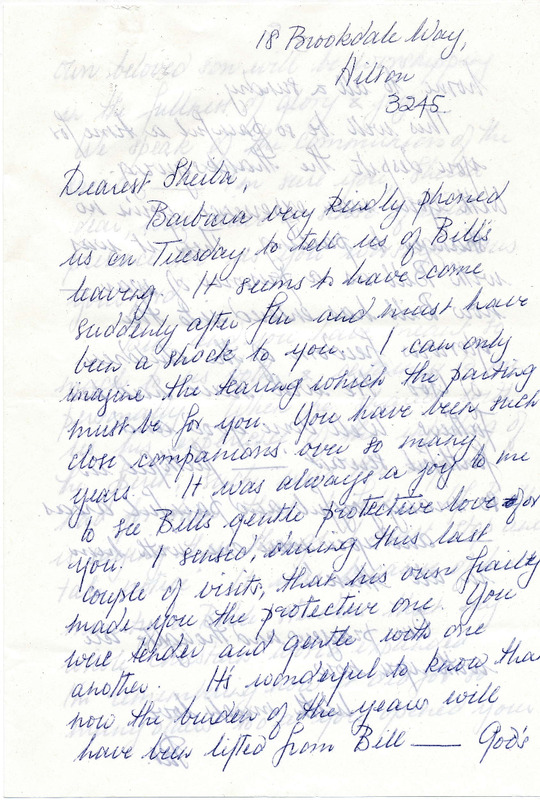 18 Brookdale Way,
Hilton
3245.
Dearest Sheila,
Barbara very kindly phoned
us on Tuesday to tell us of Bill's
leaving. It seems to have come
suddenly after flu and must have
been a shock to you. I can only
imagine the tearing which the parting
must be for you. You have been such
close companions over so many
years. It was always a joy to me
to see Bills gentle protective love for
you. I sensed, during this last
couple of visits, that his own frailty
made you the protective one. You
were tender and gentle with one
another. It's wonderful to know that
now the burden of the years will
have been lifted from Bill — God's